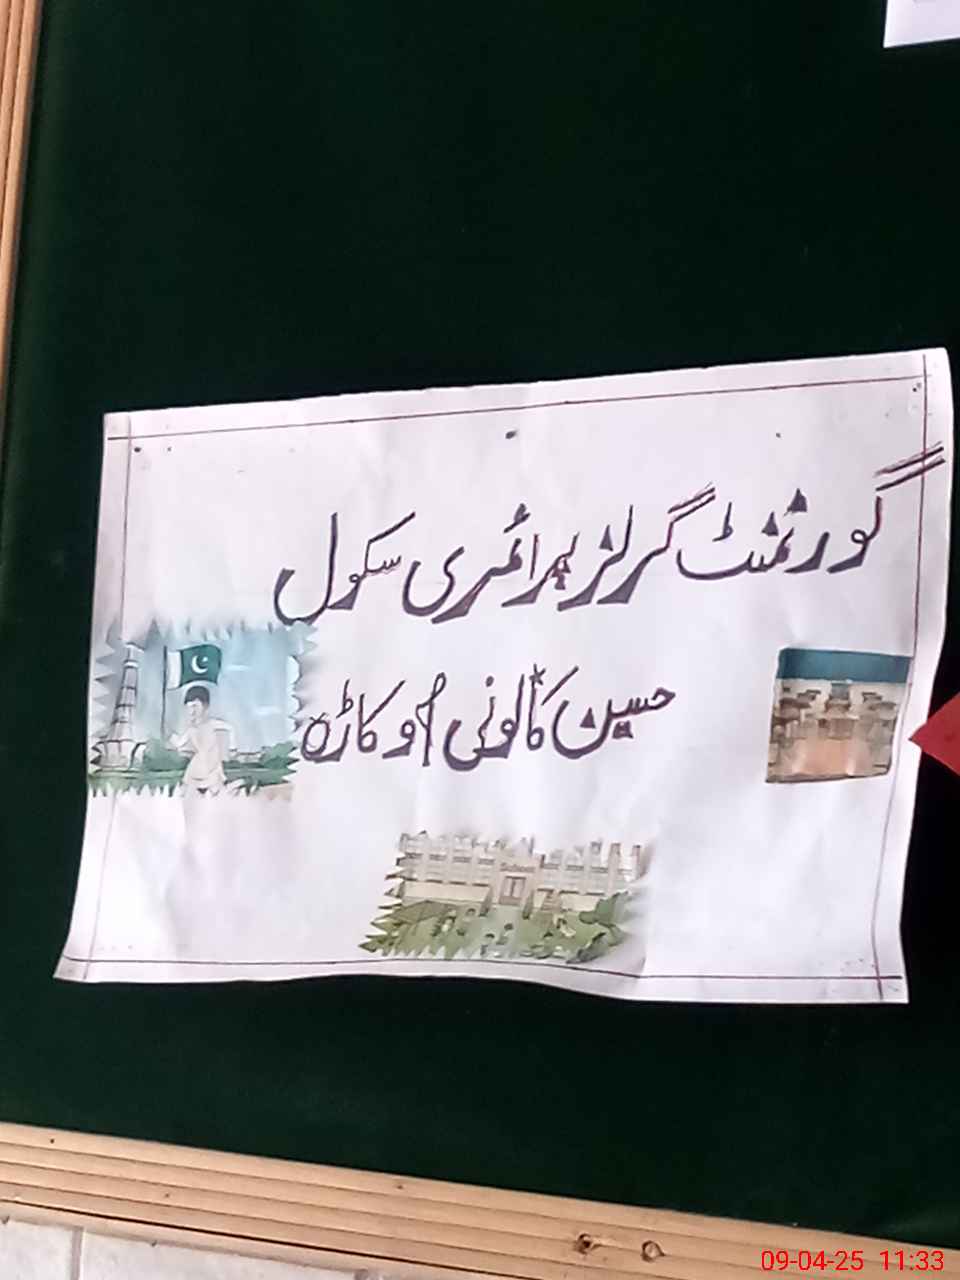 گورنمنٹ گرلز پرائمری سکول
حسین کالونی اوکاڑہ
School
09-04-25 11:33